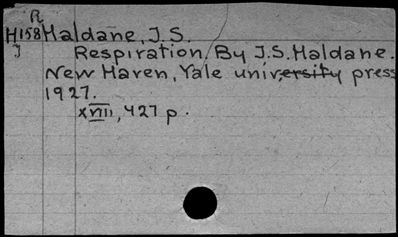 R
H158 Haldane, J.S.
J Respiration, By J.S. Haldane.
New Haven, Yale university press
1927.
xviii, 427 p.